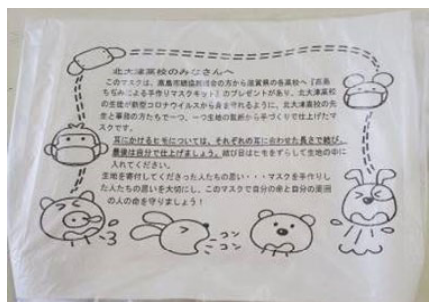 北大津高校のみなさんへ
このマスクは、高島市織協同組合の方から滋賀県の各高校へ『高島
ちぢみによる手作りマスクキット』のプレゼントがあり、北大津高校
の生徒が新型コロナウイルスから身を守れるように、北大津高校の先
生と事務の方たちで一つ、一つ生地の裁断から手づくりで仕上げたマ
スクです。
耳にかけるヒモについては、それぞれの耳に合わせた長さで結び、
最後は自分で仕上げましょう。結び目はヒモをずらして生地の中に
入れてください。
生地を寄付してくださった人たちの思い・・・マスクを手作りし
た人たちの思いを大切にし、このマスクで自分の命と自分の周囲
の人の命を守りましょう!
コン
コン